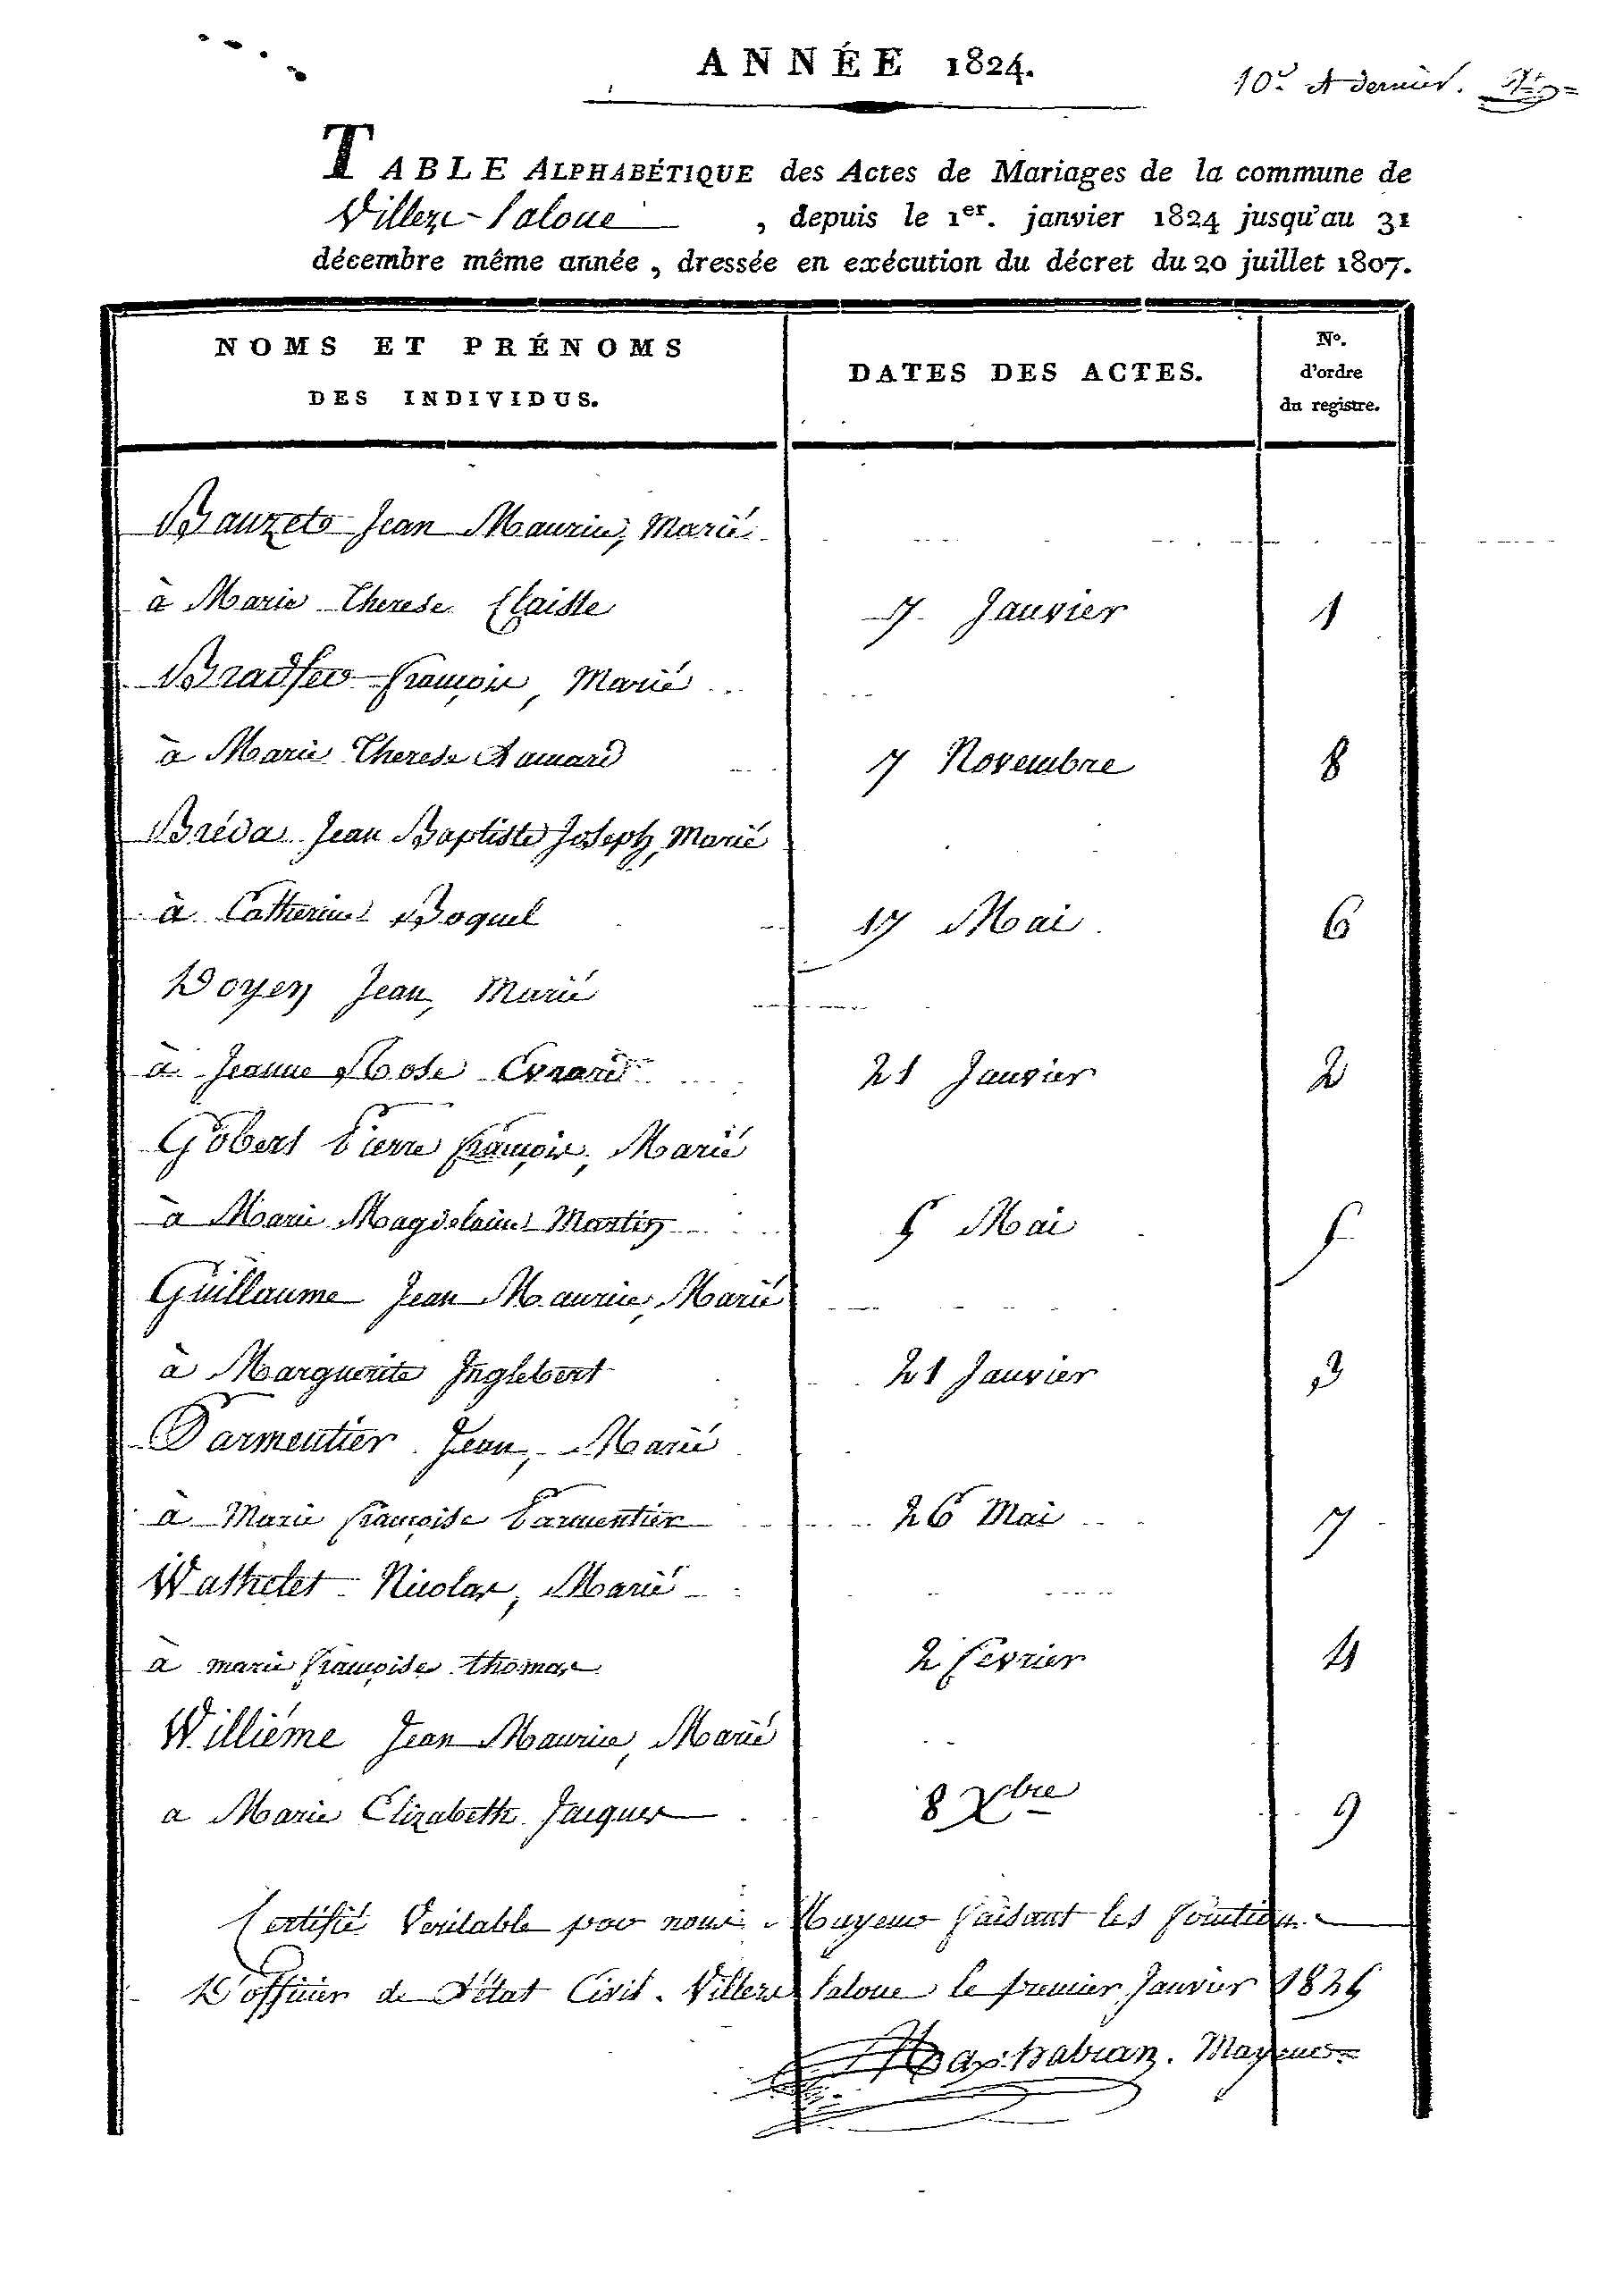 ANNÉE 1824.
10.e et dernier.
TABLE ALPHABÉTIQUE des Actes de Mariages de la commune de
Villeze-Laloue, depuis le 1er. janvier 1824 jusqu'au 31
décembre même année, dressée en exécution du décret du 20 juillet 1807.
NOMS ET PRÉNOMS DES INDIVIDUS. DATES DES ACTES. No. d'ordre du registre.
Bauzeto Jean Maurice, Marié
à Marie Therese Claisse 7 Janvier 1
Bradfer françois, Marié
à Marie Therese 7 Novembre 8
Bréda Jean Baptiste Joseph, Marié
à Catherine Boquel 17 Mai 6
Doyen Jean, Marié
à Jeanne Rose Evrard 21 Janvier 2
Gobert Pierre françois, Marié
à Marie Magdelaine Martin 5 Mai 5
Guillaume Jean Maurice, Marié
à Marguerite Inglebert 21 Janvier 3
Parmentier Jean, Marié
à Marie françoise Parmentier 26 Mai 7
Wathelet Nicolas, Marié
à marie françoise thomas 2 fevrier 4
Williéme Jean Maurice, Marié
a Marie Elizabeth Jacques 8 Xbre 9
Certifié Veritable par nous Mayeur faisant les fonction
D'officier de L'état Civil. Villeze Laloue le premier Janvier 1825
Mayeur